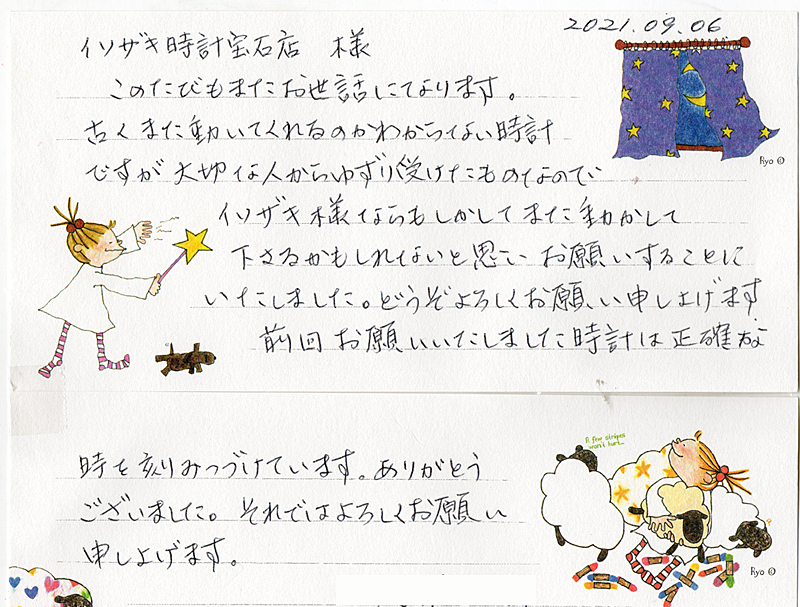 2021.09.06
イソザキ時計宝石店 様
このたびもまたお世話になります。
古くまた動いてくれるのかわからない時計
ですが大切な人からゆずり受けたものなので
イソザキ様ならもしかしてまた動かして
下さるかもしれないと思い お願いすることに
いたしました。どうぞよろしくお願い申し上げます
前回お願いいたしました時計は正確な
Ryo ©
時を刻みつづけています。ありがとう
ございました。それではよろしくお願い
申し上げます。
A few stripes
won't hurt...
Ryo ©